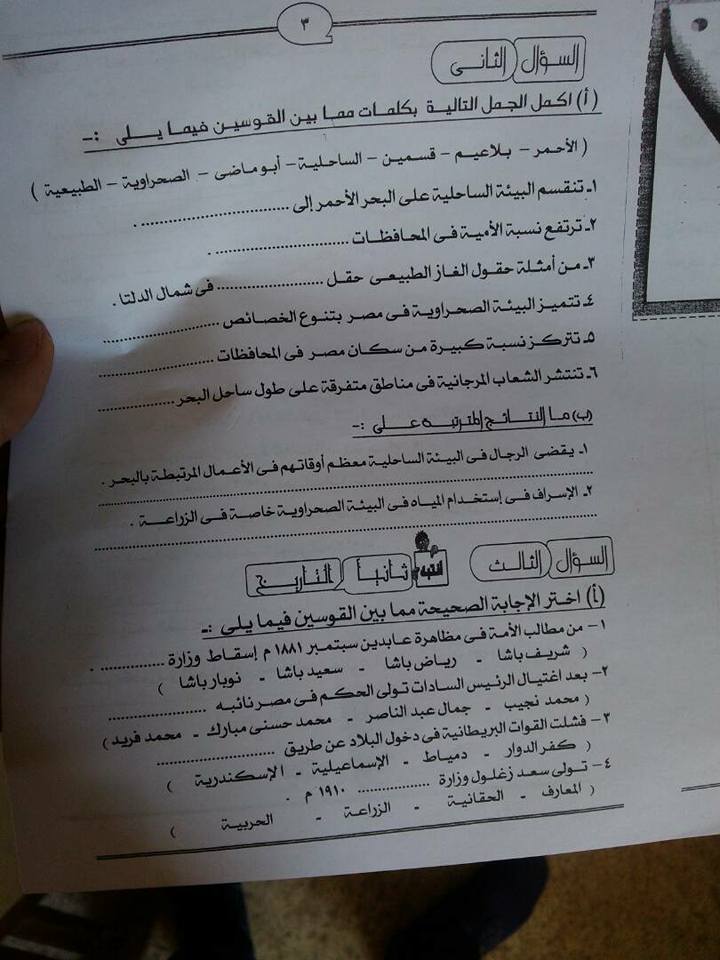 ٣
السؤال الثانى
(أ) اكمل الجمل التالية بكلمات مما بين القوسين فيما يلى :-
( الأحمر – بلاعيم – قسمين – الساحلية – أبو ماضى – الصحراوية – الطبيعية )
١ـ تنقسم البيئة الساحلية على البحر الأحمر إلى .................... .
٢ـ ترتفع نسبة الأمية فى المحافظات .................... .
٣ـ من أمثلة حقول الغاز الطبيعى حقل .................... فى شمال الدلتا .
٤ـ تتميز البيئة الصحراوية فى مصر بتنوع الخصائص ....................
٥ـ تتركز نسبة كبيرة من سكان مصر فى المحافظات ....................
٦ـ تنتشر الشعاب المرجانية فى مناطق متفرقة على طول ساحل البحر ....................
(ب) ما النتائج المترتبة على :-
١ـ يقضى الرجال فى البيئة الساحلية معظم أوقاتهم فى الأعمال المرتبطة بالبحر .
٢ـ الإسراف فى إستخدام المياه فى البيئة الصحراوية خاصة فى الزراعة .
السؤال الثالث انتبه ثانياً التاريخ
(أ) اختر الإجابة الصحيحة مما بين القوسين فيما يلى :-
١- من مطالب الأمة فى مظاهرة عابدين سبتمبر ١٨٨١ م إسقاط وزارة .................... .
( شريف باشا - رياض باشا - سعيد باشا - نوبار باشا )
٢- بعد اغتيال الرئيس السادات تولى الحكم فى مصر نائبه ....................
( محمد نجيب - جمال عبد الناصر - محمد حسنى مبارك - محمد فريد )
٣- فشلت القوات البريطانية فى دخول البلاد عن طريق ....................
( كفر الدوار - دمياط - الإسماعيلية - الإسكندرية )
٤- تولى سعد زغلول وزارة .................... ١٩١٠ م .
( المعارف - الحقانية - الزراعة - الحربية )